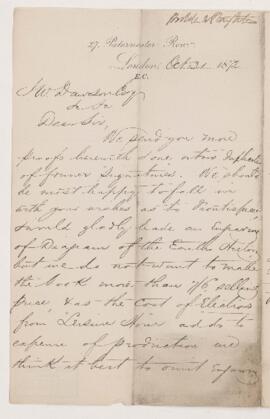 27, Paternoster Row
London, Oct 1872
E.C.
J W Dawson Esq
Dear Sir,
We send you more
proofs herewith & one or two duplicates
of former signatures. We should
be most happy to fall in
with your wishes as to Frontispiece
should gladly have an
of Diagram of the Earth's History
but we do not want to make
the book more than 7/6 selling
price, & as the cost of
from "Leisure Hour" add to
expense of production we
think it best to omit